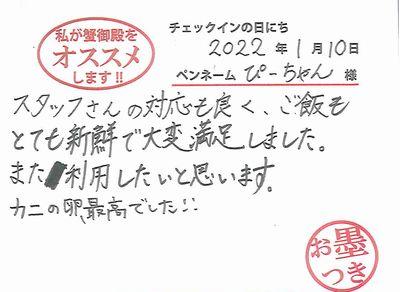 私が蟹御殿を
オススメ
します!!
チェックインの日にち
2022 年 1月10日
ペンネーム ぴーちゃん 様
スタッフさんの対応も良く、ご飯も
とても新鮮で大変満足しました。
また利用したいと思います。
カニの卵最高でした!!
お墨
つき